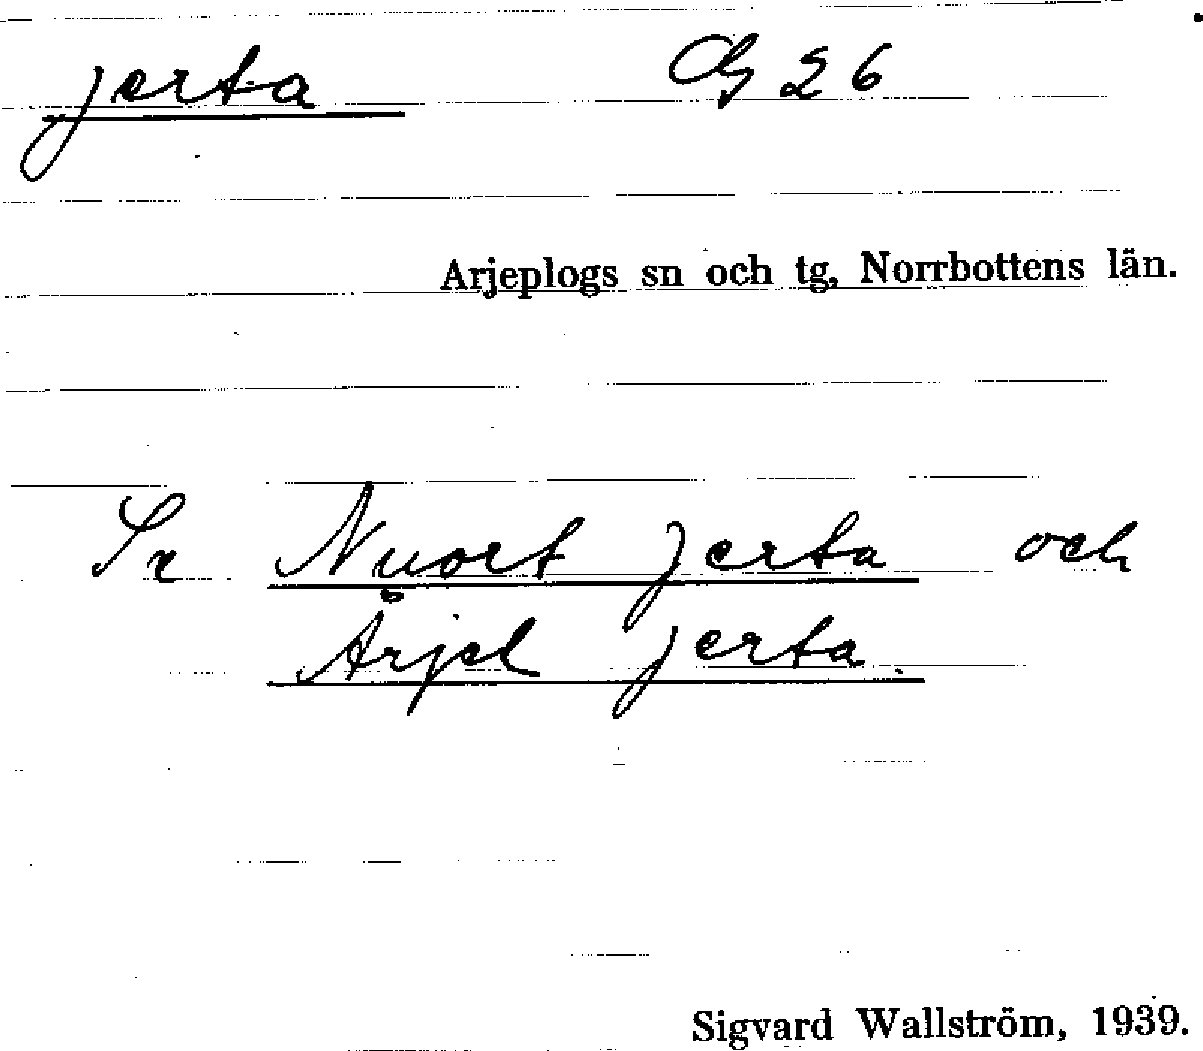 jerta
26
Arjeplogs sn och tg, Norrbottens län.
Se Nuort jerta och
Årjel jerta.
Sigvard Wallström, 1939.